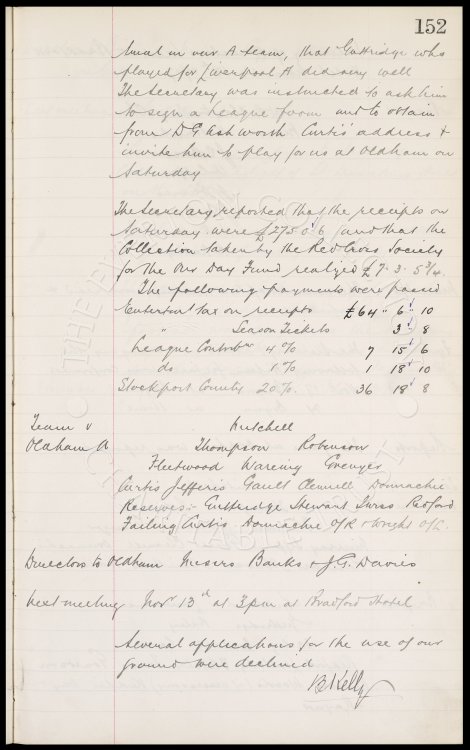 152
in our A team, that Guttridge who
played for Liverpool A did very well
The Secretary was instructed to ask him
to sign a League form and to obtain
from D G Ashworth Curtis' address &
invite him to play for us at Oldham on
Saturday
The Secretary reported that the receipts on
Saturday were £275 0 6 and that the
Collection taken by the Red Cross Society
for the Our Day Fund realized £7. 3. 5 3/4.
The following payments were passed
Entertmt tax on receipts £64 " 6 10
" Season Tickets 3 8
League Contribn 4 % 7 15 6
do 1 % 1 18 10
Stockport County 20 %. 36 18 8
Team v Mitchell
Oldham A Thompson Robinson
Fleetwood Wareing Grenyer
Curtis Jefferis Gault Clennell Donnachie
Reserves:- Guttridge Stewart
Failing Curtis. Donnachie O/R & Wright O/L.
Directors to Oldham Messrs Banks & J. G. Davies
Next meeting Novr 13th at 3 pm at Bradford Hotel
Several applications for the use of our
ground were declined
B Kelly